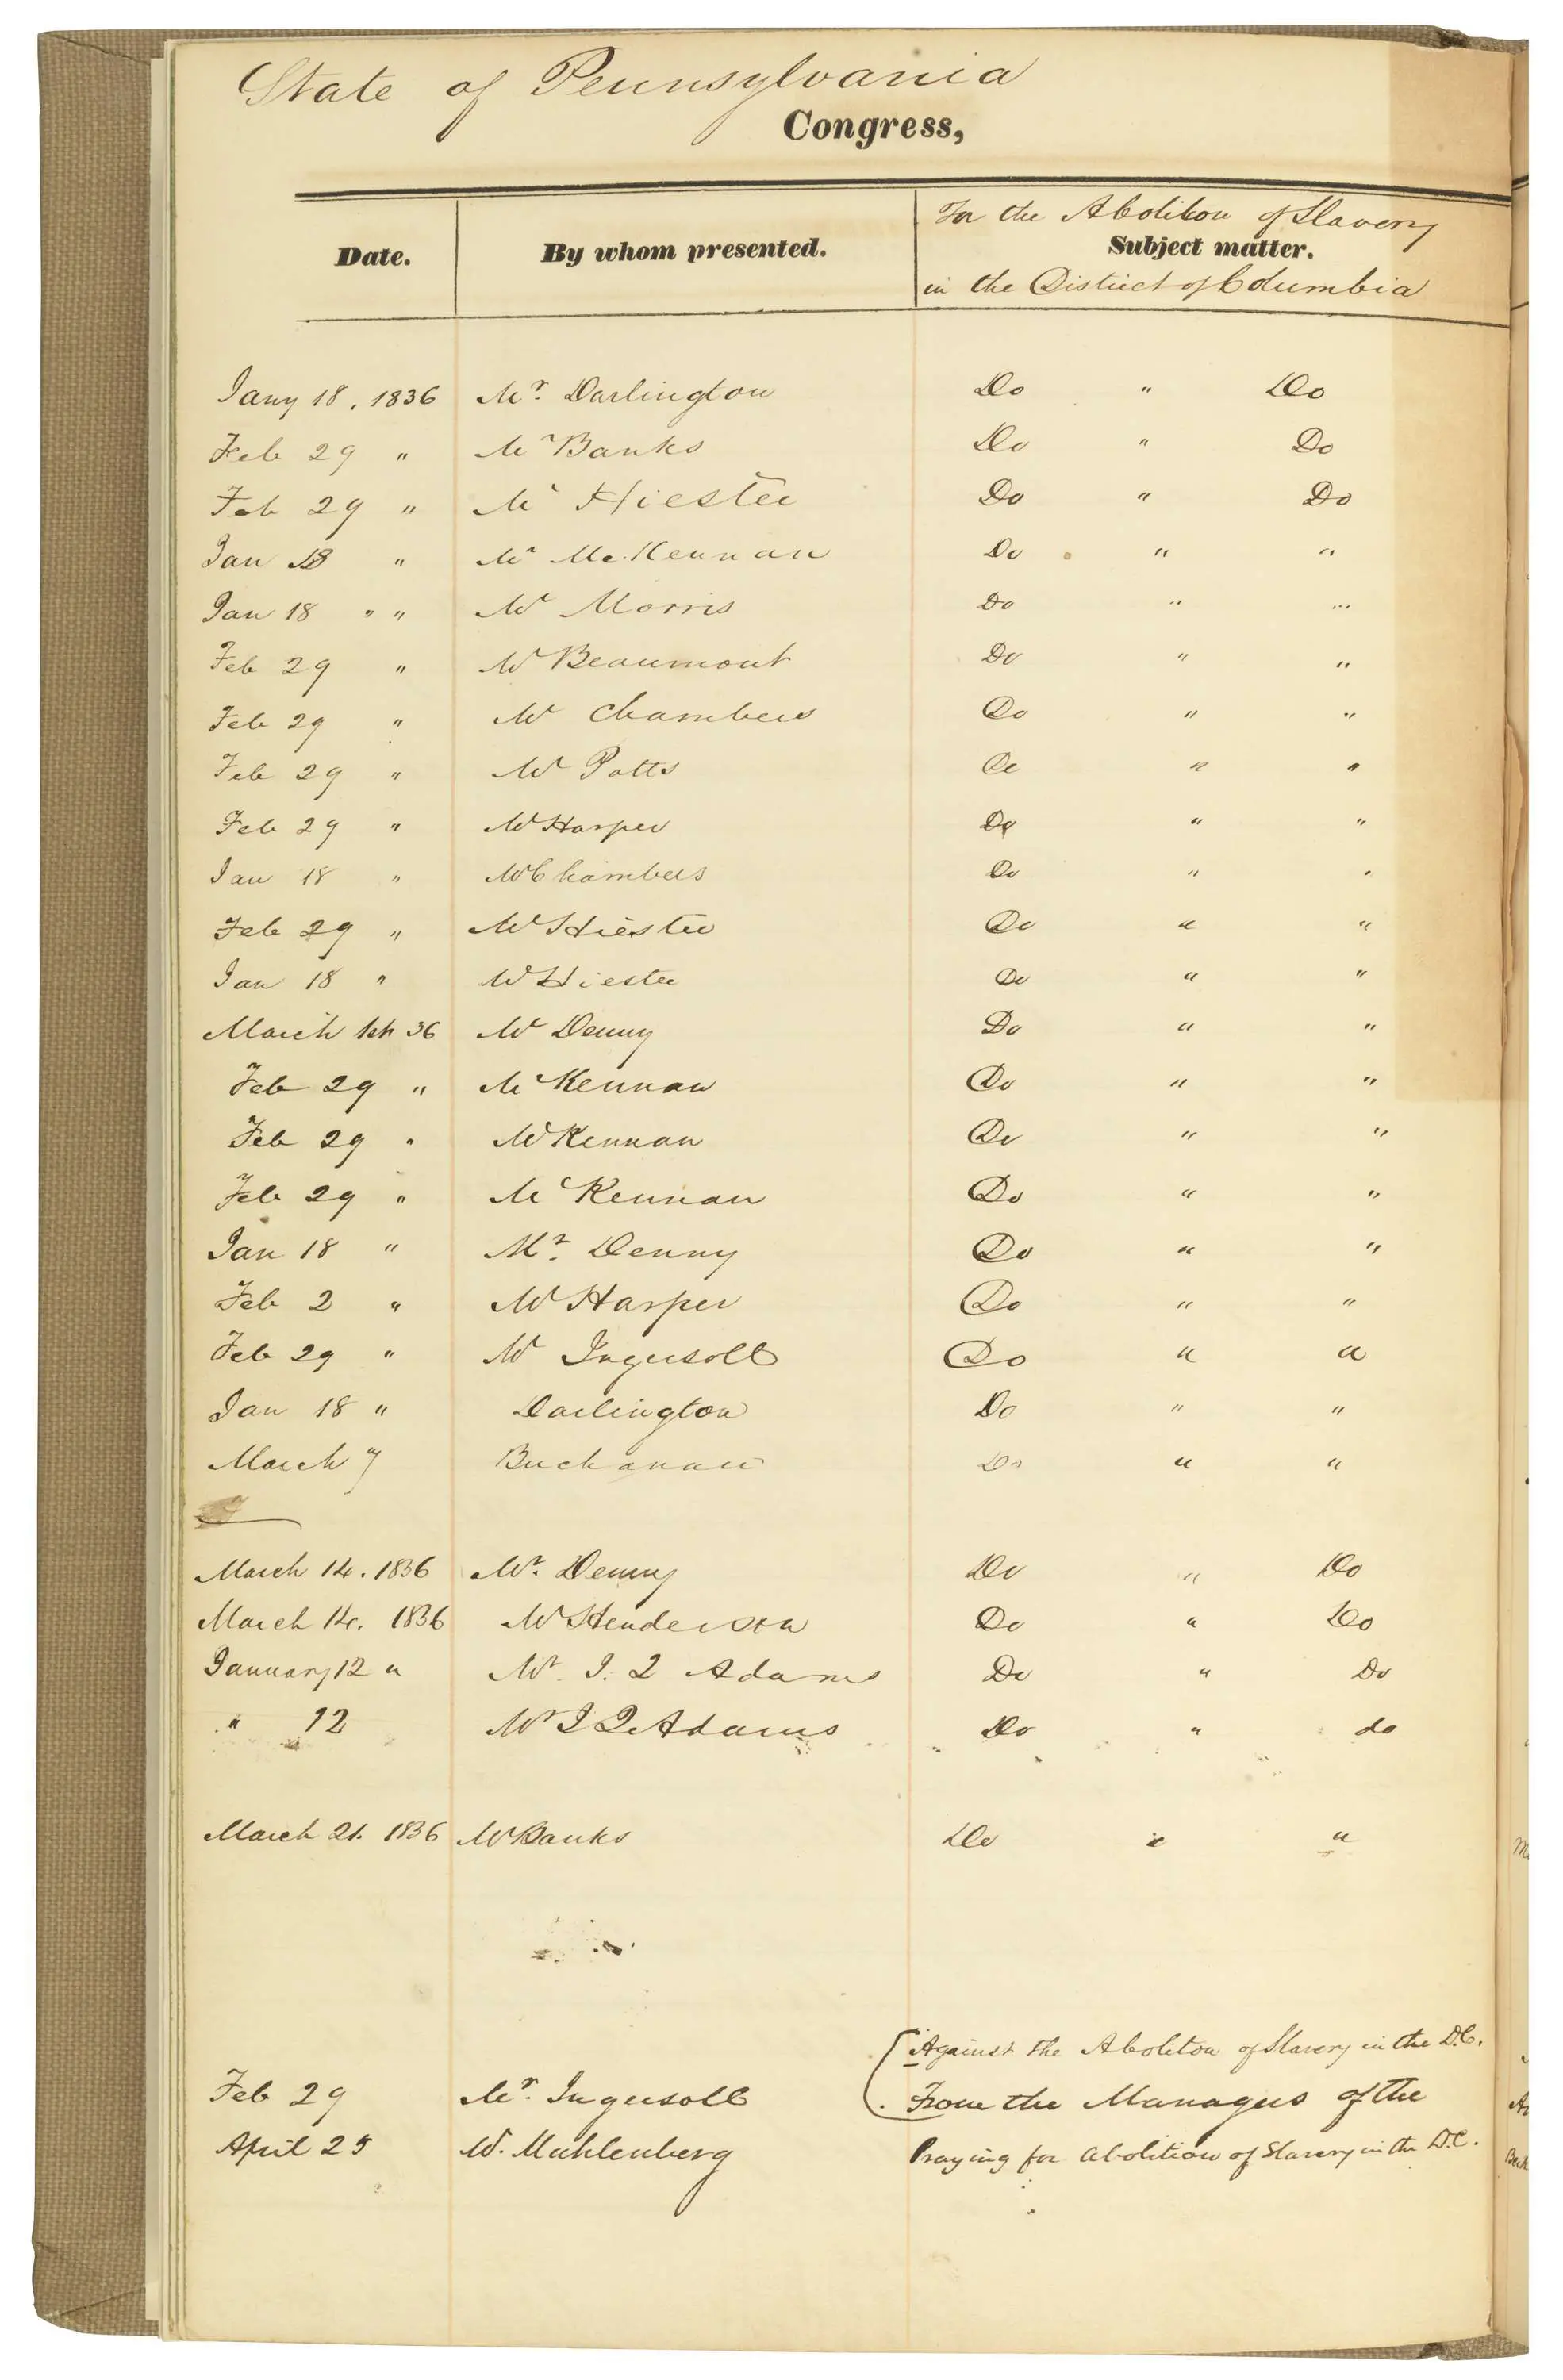 State of Pennsylvania
Congress,
For the Abolition of Slavery
Date. By whom presented. Subject matter.
in the District of Columbia
Jany 18, 1836 Mr. Darlington Do " Do
Feb 29 " Mr Banks Do " Do
Feb 29 " Mr Hiester Do " Do
Jan 18 " Mr McKennan Do " "
Jan 18 " " Mr Morris Do " "
Feb 29 " Mr Beaumont Do " "
Feb 29 " Mr Chambers Do " "
Feb 29 " Mr Potts Do " "
Feb 29 " Mr Harper Do " "
Jan 18 " Mr Chambers Do " "
Feb 29 " Mr Hiester Do " "
Jan 18 " Mr Hiester Do " "
March 1st 36 Mr Denny Do " "
Feb 29 " McKennan Do " "
Feb 29 " McKennan Do " "
Feb 29 " McKennan Do " "
Jan 18 " Mr. Denny Do " "
Feb 2 " Mr Harper Do " "
Feb 29 " Mr Ingersoll Do " "
Jan 18 " Darlington Do " "
March 7 Buchanan Do " "
March 14. 1836 Mr. Denny Do " Do
March 14. 1836 Mr Henderson Do " Do
January 12 " Mr. J. Q Adams Do " Do
" 12 Mr J Q Adams Do " do
March 21. 1836 Mr Banks Do " "
Against the Abolition of Slavery in the D.C.
Feb 29 Mr. Ingersoll From the Managers of the
April 25 Mr. Muhlenberg Praying for abolition of Slavery in the D.C.